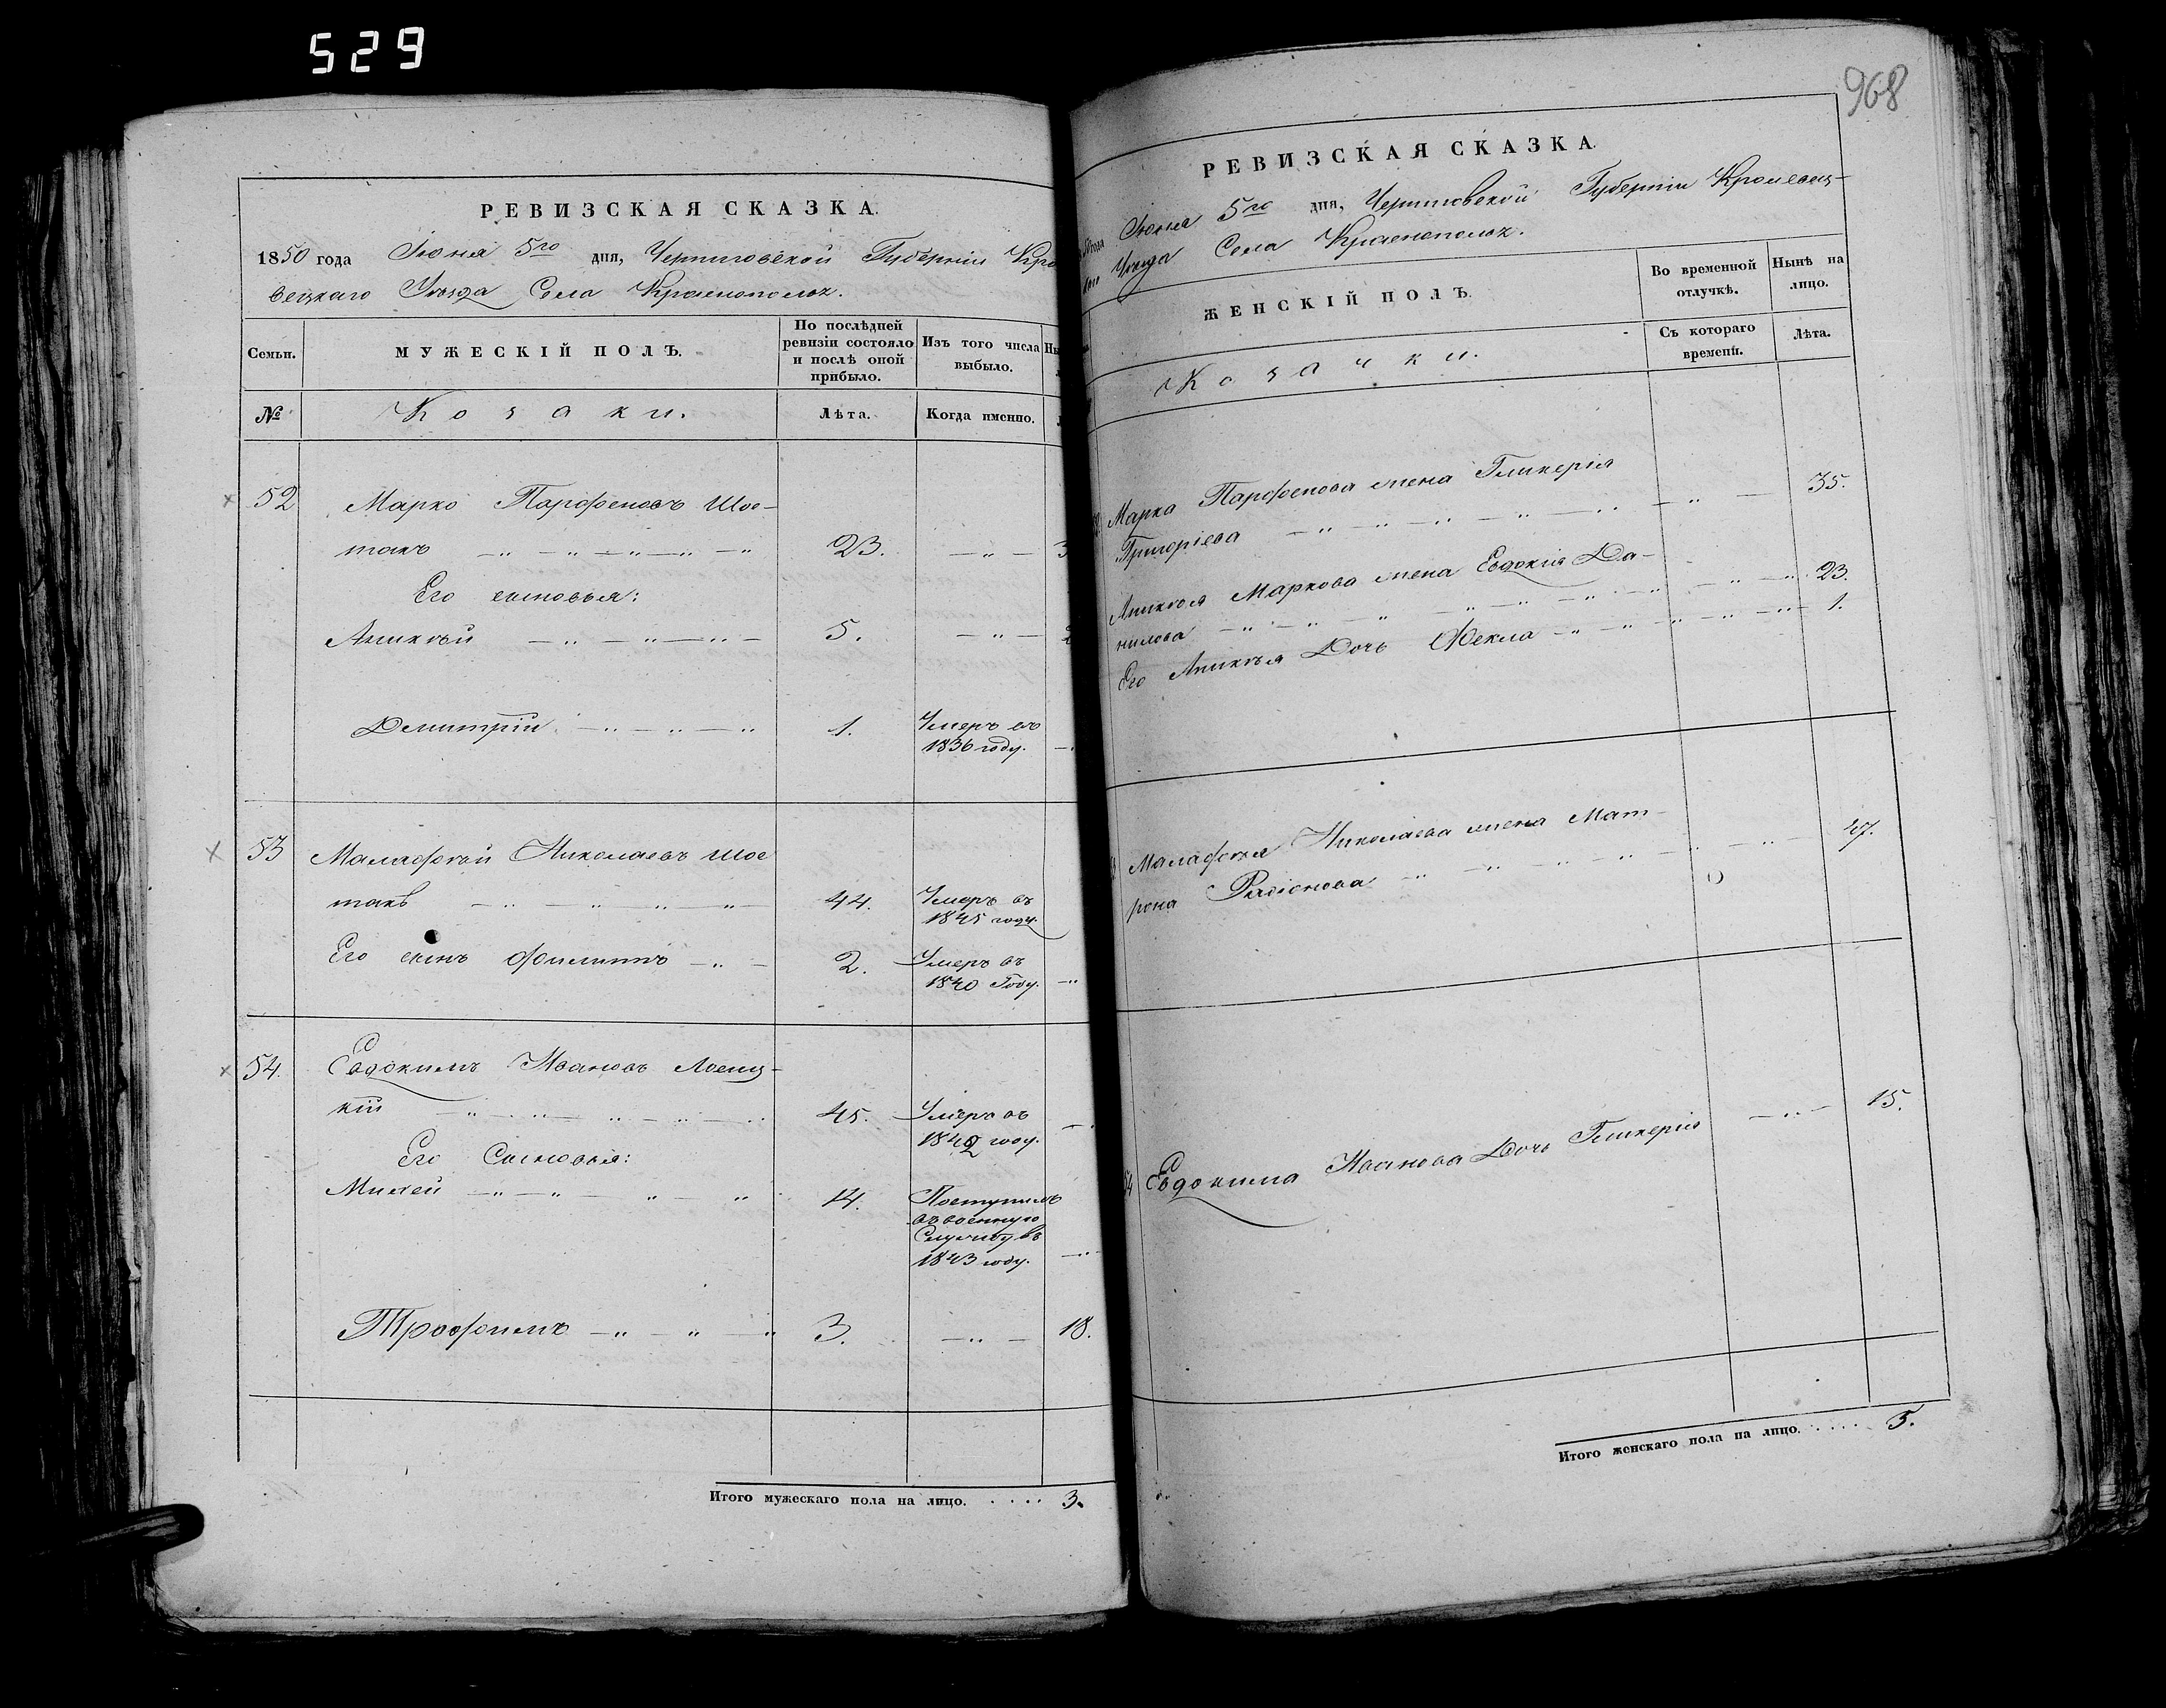 529
РЕВИЗСКАЯ СКАЗКА.
1850 года Іюня 5го дня, Черниговской Губерніи Кро
вецкаго Уѣзда Села Краснополья.
Семьи.
МУЖЕСКІЙ ПОЛЪ.
По послѣдней
ревизіи состояло
и послѣ оной
прибыло.
Изъ того числа
выбыло.
№
Козаки.
Лѣта.
Когда именно.
52 Марко Парфеновъ Шос-
такъ 23.
Его сыновья:
Аникѣй 5.
Димитрій 1. Умеръ въ
1836 году.
53 Малафѣй Николаевъ Шос
такъ 44. Умеръ въ
1845 году.
Его сынъ Филиппъ 2. Умеръ въ
1840 Году.
54. Евдокимъ Ивановъ Лосиц-
кій 45. Умеръ въ
1842 году.
Его Сыновья:
Михей 14. Поступилъ
въ военную
Службу въ
1843 году.
Трофимъ 3. 18.
Итого мужескаго пола на лицо. . . . . 3.
968
РЕВИЗСКАЯ СКАЗКА.
года Іюня 5го дня, Черниговской Губерніи Кролевец-
Уѣзда Села Краснополья.
ЖЕНСКІЙ ПОЛЪ.
Во временной
отлучкѣ.
Нынѣ на
лицо.
Козачки.
Съ котораго
времени.
Лѣта.
Марка Парфенова жена Гликерія
Григоріева 35.
Аникѣя Маркова жена Евдокія Да-
нилова 23.
Его Аникѣя Дочь Фекла 1.
Малафѣя Николаева жена Мат-
рона Радіонова 47.
54 Евдокима Иванова Дочь Гликерія 15.
Итого женскаго пола на лицо. . . . . 5.